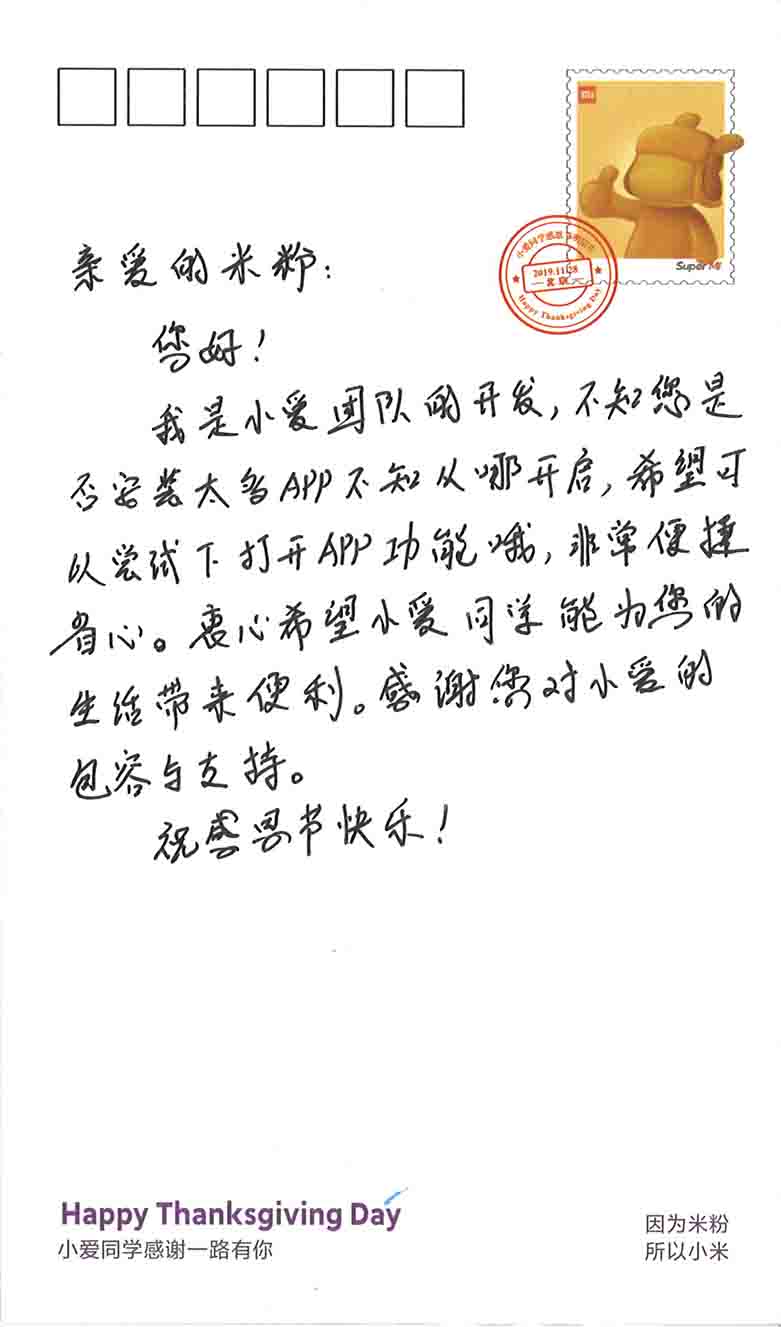 MI
Super MI
小爱同学感恩节明信片
2019.11.28
北京
Happy Thanksgiving Day
亲爱的米粉：
您好！
我是小爱团队的开发，不知您是
否安装太多APP不知从哪开启，希望可
以尝试下打开APP功能哦，非常便捷
省心。衷心希望小爱同学能为您的
生活带来便利。感谢您对小爱的
包容与支持。
祝感恩节快乐！
Happy Thanksgiving Day
小爱同学感谢一路有你
因为米粉
所以小米